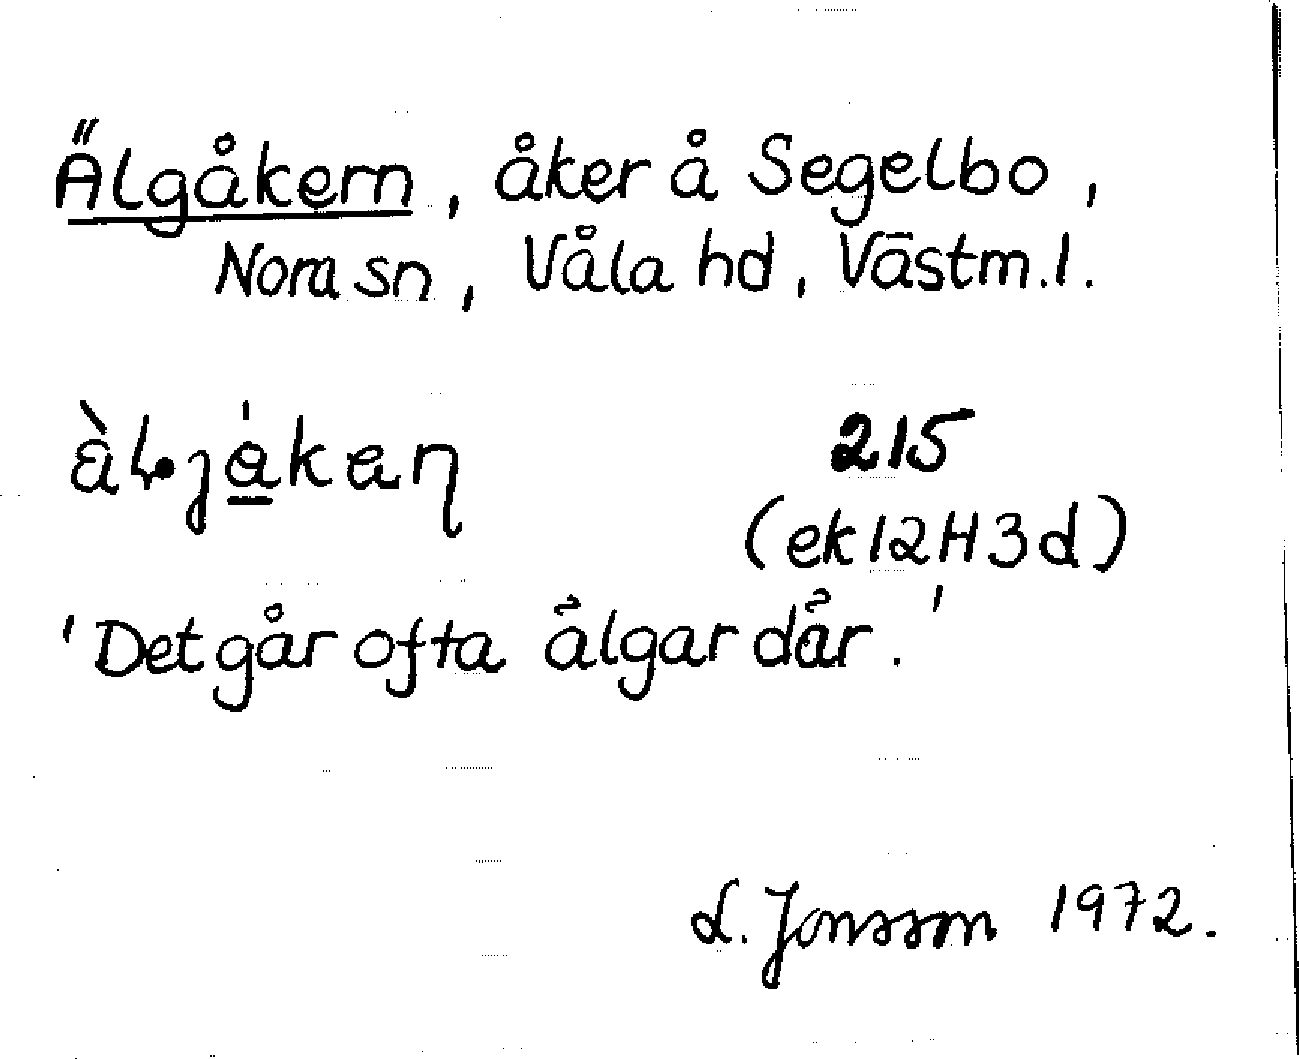 Älgåkern, åker å Segelbo,
Nora sn, Våla hd, Västm.l.
215
(ek 12H3d)
'Det går ofta älgar där.'
L. Jonsson 1972.